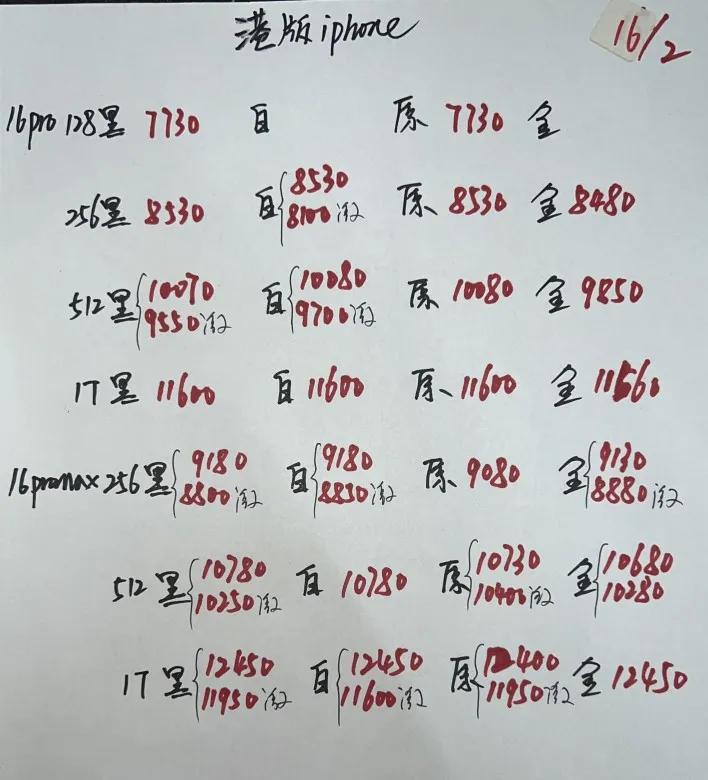 港版iphone 16/2
16pro 128黑 7730 白 原 7730 金
256黑 8530 白 8530 8100激 原 8530 金 8480
512黑 10070 9550激 白 10080 9700激 原 10080 金 9850
1T黑 11600 白 11600 原 11600 金 11560
16promax 256黑 9180 8800激 白 9180 8830激 原 9080 金 9130 8880激
512黑 10780 10250激 白 10780 原 10730 10400激 金 10680 10280
1T黑 12450 11950激 白 12450 11600激 原 12400 11950激 金 12450